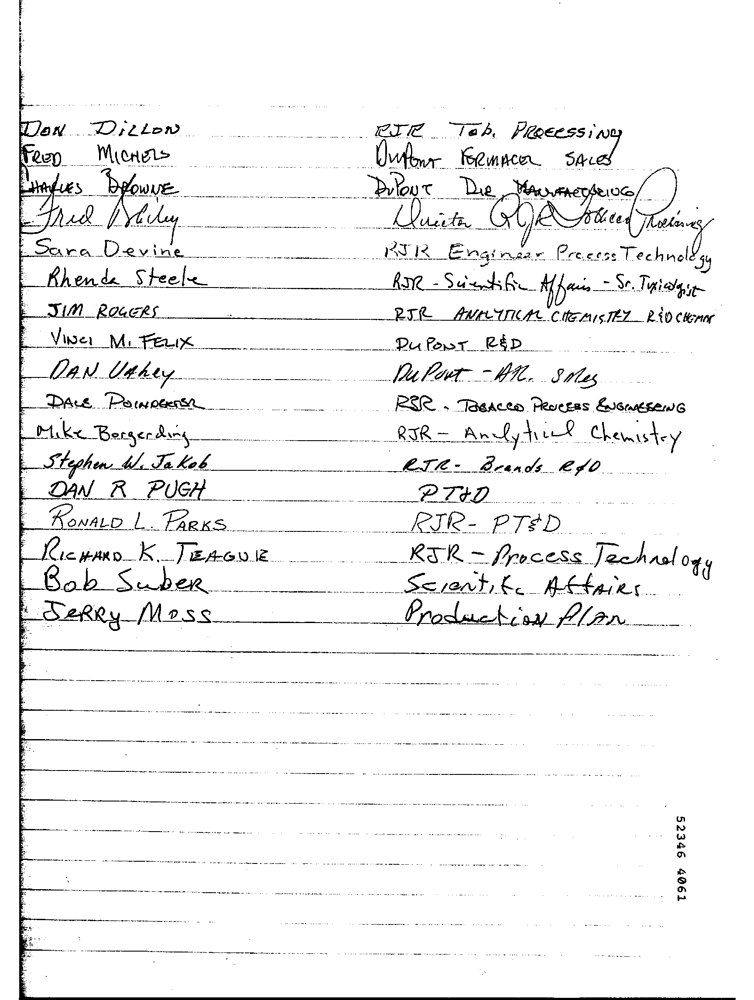 DON DILLON RJR Tob. PROCESSING
FRED MICHELS DuPont FORMACEL SALES
CHARLES BROWNE DuPONT Dir MANUFACTURING
Fred Director RJR Tobacco Processing
Sara Devine RJR Engineer Process Technology
Rhenda Steele RJR - Scientific Affairs - Sr. Toxicologist
JIM ROGERS RJR ANALYTICAL CHEMISTRY R&D CHEMIST
VINCI M. FELIX DUPONT R&D
DAN DuPont - Sales
DALE POINDEXTER RJR - TOBACCO PROCESS ENGINEERING
Mike Borgerding RJR - Analytical Chemistry
Stephen W. Jakob RJR - Brands R&D
DAN R PUGH PT&D
RONALD L. PARKS RJR - PT&D
RICHARD K. TEAGUE RJR - Process Technology
Bob Suber Scientific Affairs
JERRY MOSS Production Plan
52346 4061